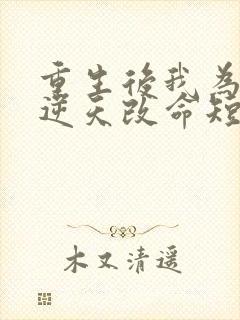 重生後我為
逆天改命短
木又清遥